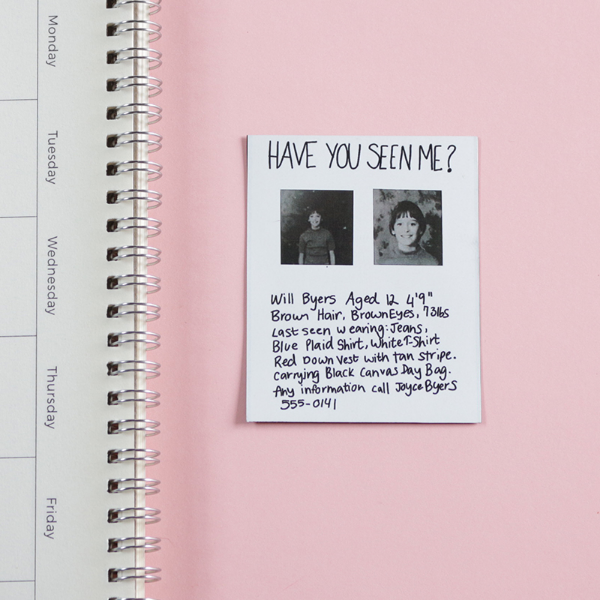 Monday
Tuesday
Wednesday
Thursday
Friday
HAVE YOU SEEN ME?
Will Byers Aged 12 4'9"
Brown Hair, Brown Eyes, 73lbs
Last seen wearing: Jeans,
Blue Plaid Shirt, White T-Shirt
Red Down Vest with tan stripe.
Carrying Black Canvas Day Bag.
Any information call Joyce Byers
555-0141